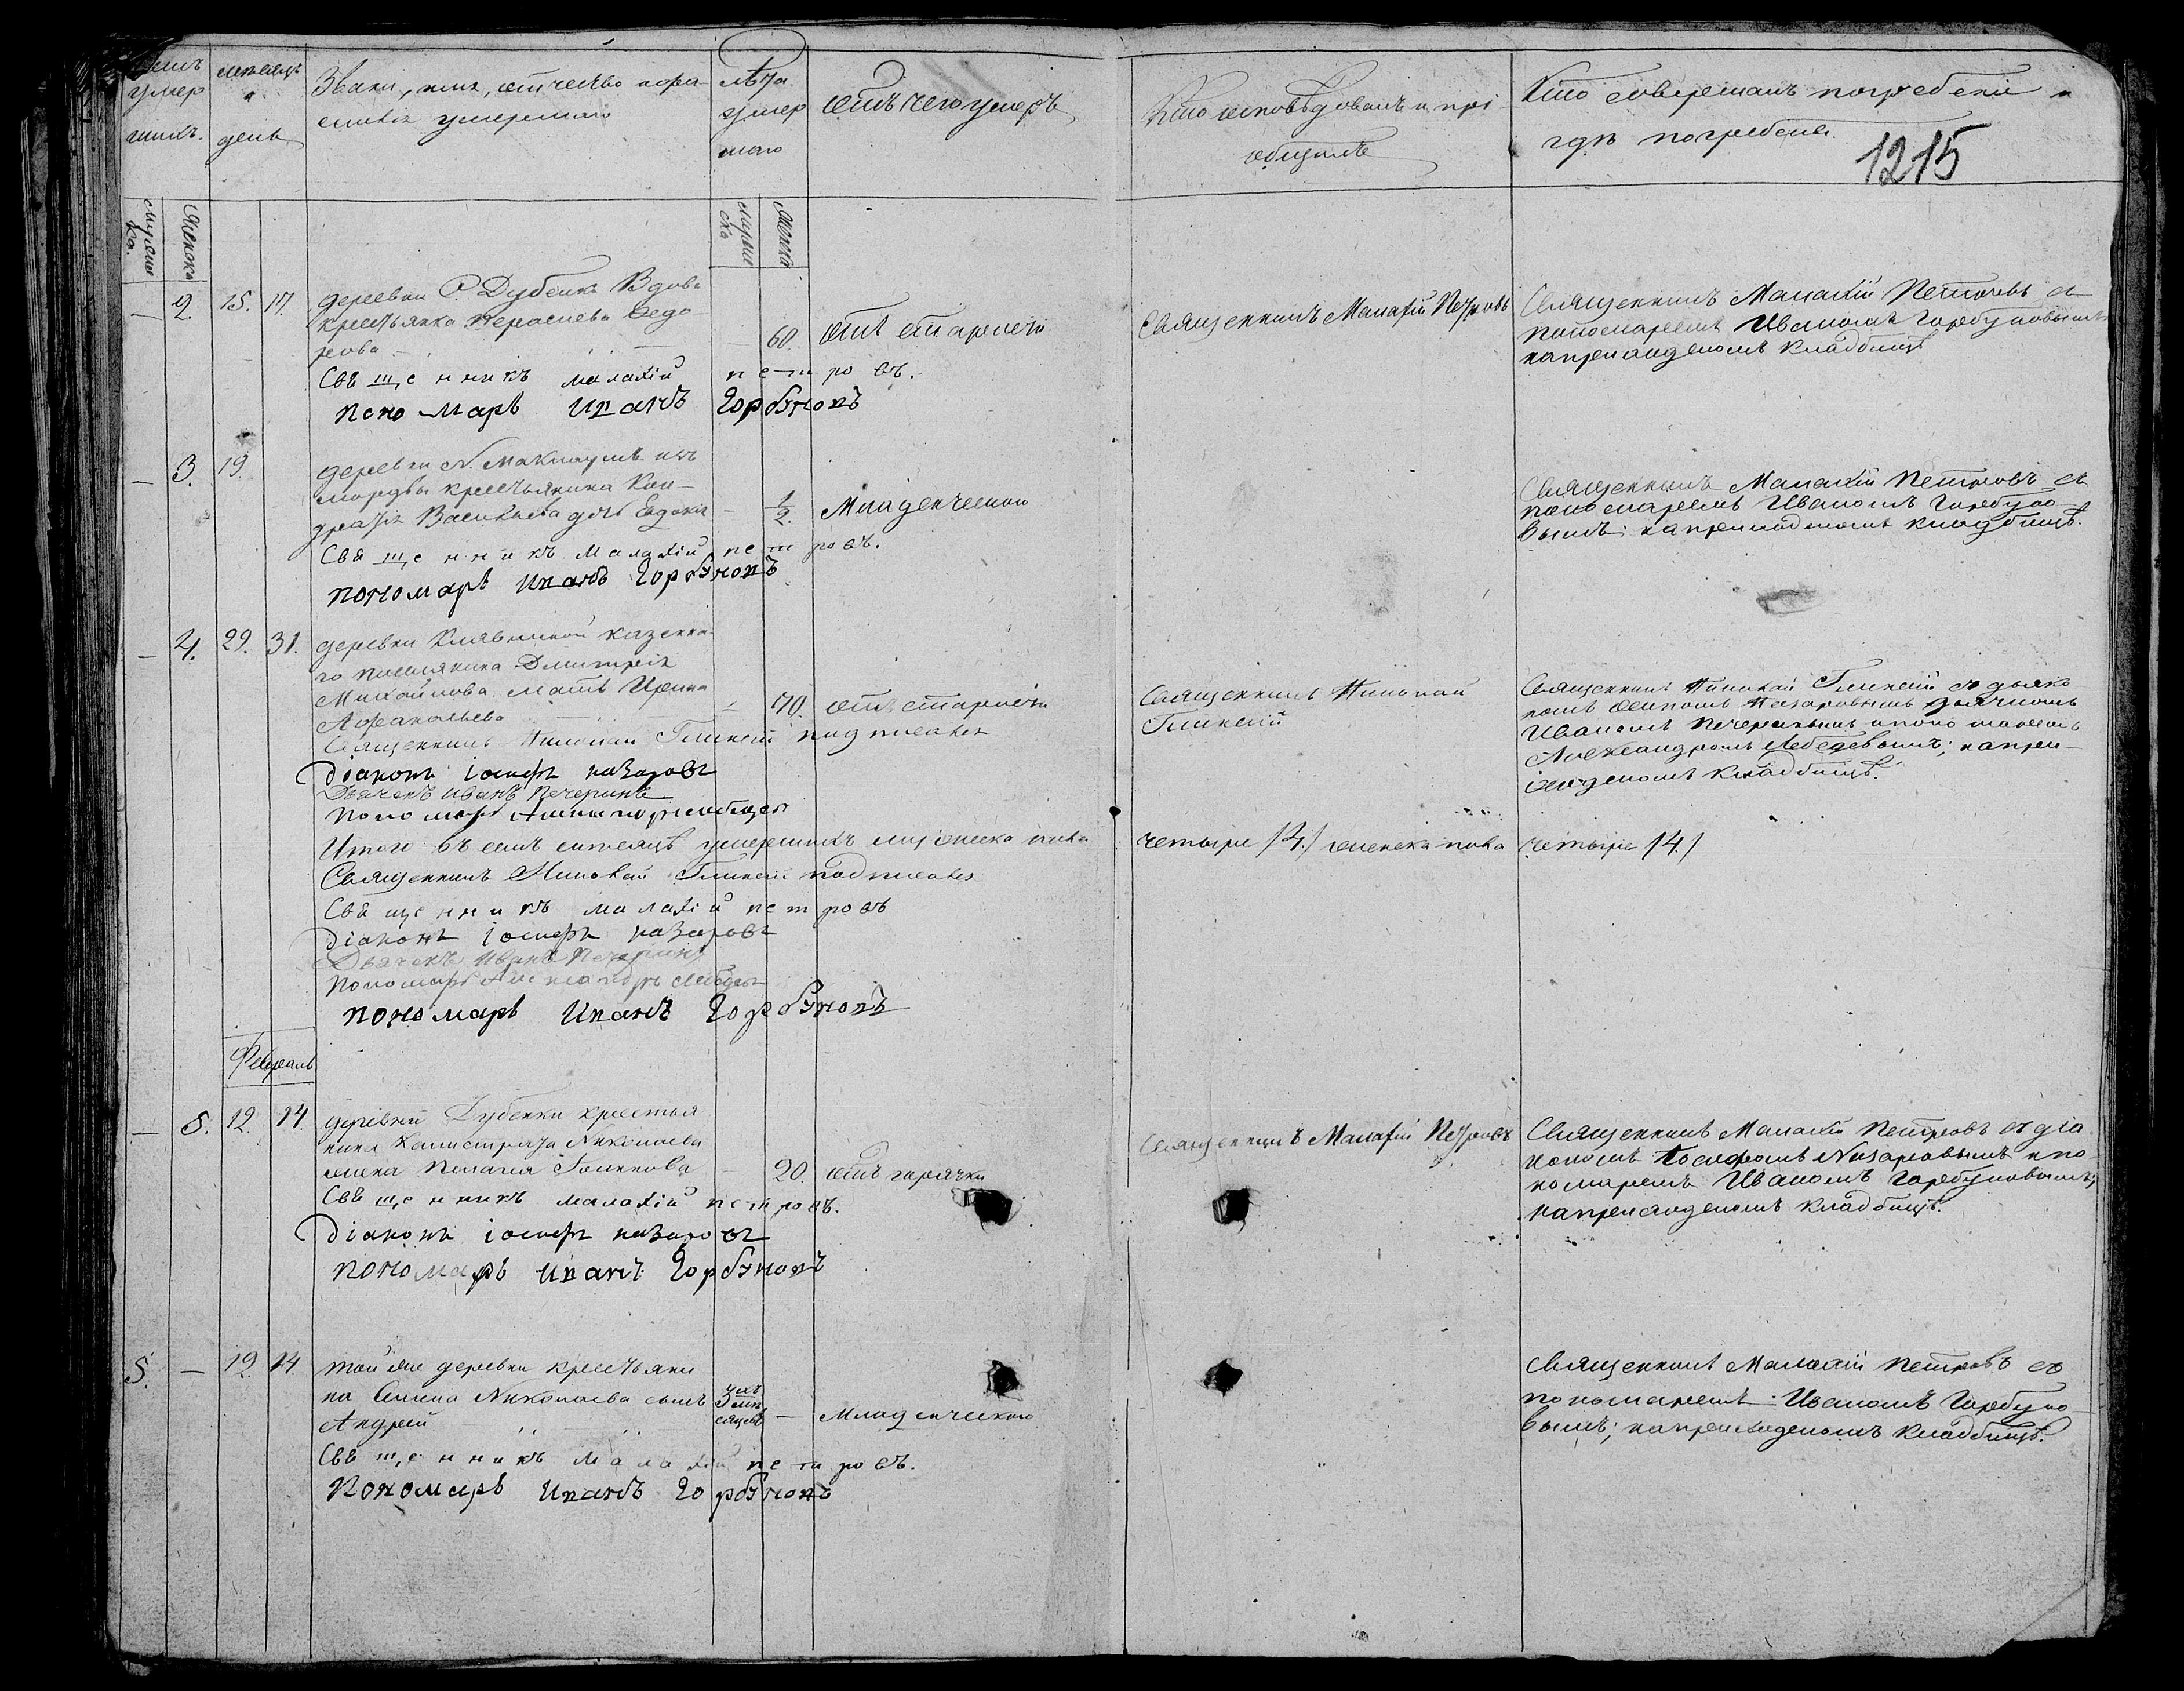 счетъ умер шихъ.
мѣсяцъ и день
Званіе, имя, отчество и фа-
милія умершаго
лѣта умер шаго
отъ чего умеръ
Кто исповѣдовалъ и прі-
общалъ
Кто совершалъ погребеніе и
гдѣ погребены.
1215
мужеска.
женска
мужеска
женска
— 2. 15. 17.
деревни С. Дубенки Вдова
крестьянка Федо
рова — — 60. отъ старости
Священникъ Малахій Петровъ
Священникъ Малахій Петровъ съ
пономаремъ Иваномъ Горбуновымъ
на приходскомъ кладбищѣ
Священникъ малахій петровъ.
пономарь Иванъ Горбуновъ
— 3. 19.
деревни Н. Маклаушъ изъ
мордвы крестьянина Кон-
дратія Васильева дочь Евдокія — 1/2. Младенческою
Священникъ Малахій Петровъ съ
пономаремъ Иваномъ Горбуно-
вымъ; на приходскомъ кладбищѣ.
Священникъ малахій петровъ.
пономарь Иванъ Горбуновъ
— 4. 29. 31.
деревни казенна-
го поселянина Дмитрія
Михайлова мать Ирина
Афанасьева — 70. отъ старости
Священникъ Николай
Глинскій
Священникъ Николай Глинскій съ дьяко
номъ Осипомъ Назаровымъ дьячкомъ
Иваномъ Печеринымъ и пономаремъ
Александромъ Лебедевымъ; на при-
ходскомъ кладбищѣ.
Священникъ Николай Глинскій подписался
Діаконъ іосифъ назаровъ
Дьячекъ Иванъ Печеринъ
Пономарь Александръ Лебедевъ
Итого въ семъ мѣсяцѣ умершихъ мужеска пола четыре /4./ женска пола четыре /4/
Священникъ Николай Глинскій подписался
Священникъ малахій петровъ
Діаконъ іосифъ назаровъ
Дьячекъ Иванъ Печеринъ
Пономарь Александръ Лебедевъ
пономарь Иванъ Горбуновъ
Февраль
— 5. 12. 14.
деревни Дубенки крестья
нина Калистрата Николаева
жена Пелагея — 20. отъ горячки
Священникъ Малахій Петровъ
Священникъ Малахій Петровъ съ діа
кономъ Іосифомъ Назаровымъ и по
номаремъ Иваномъ Горбуновымъ,
на приходскомъ кладбищѣ.
Священникъ малахій петровъ.
Діаконъ іосифъ назаровъ
пономарь Иванъ Горбуновъ
5. — 12. 14.
той же деревни крестьяни
на Николаева сынъ
Андрей мѣсяцевъ — Младенческою
Священникъ Малахій Петровъ съ
пономаремъ Иваномъ Горбуно-
вымъ; на приходскомъ кладбищѣ.
Священникъ малахій петровъ.
Пономарь Иванъ Горбуновъ